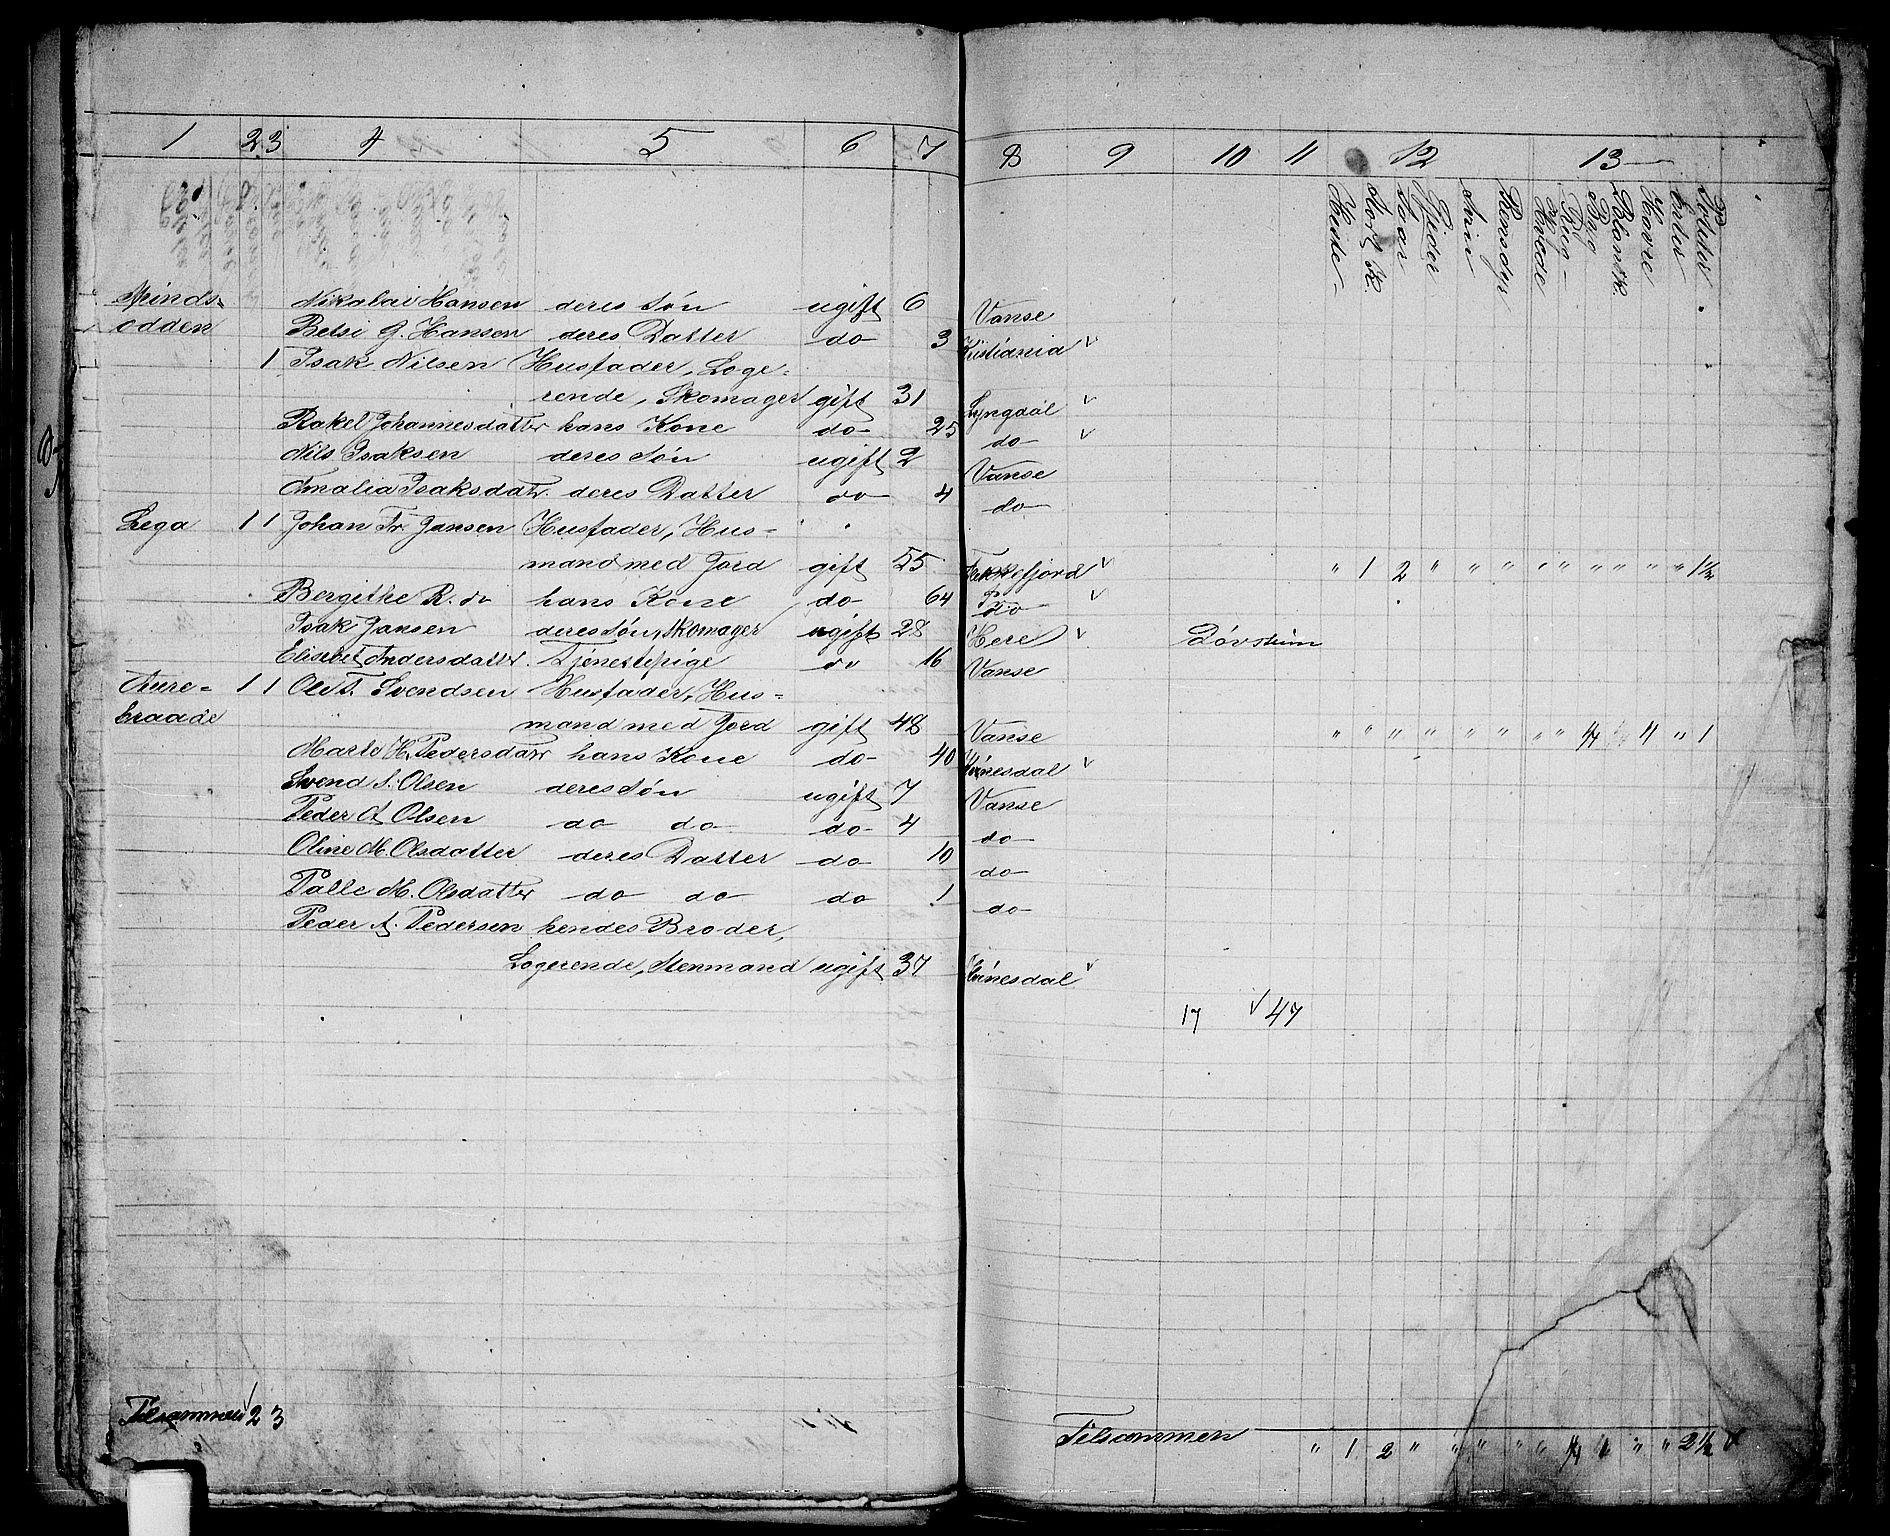 1 2 3 4 5 6 7 8 9 10 11 12 13
Heste
Stort K.
Faar
Gjeder
Sviin
Rensdyr
Hvede
Rug
Byg
Blandk
Havre
Erter
Poteter
Spinds- Nikolai Hansen deres Søn ugift 6 Vanse
odden Betsi G. Hansen deres Datter do 3 Kristiania v
1 Isak Nilsen Husfader, Loge-
rende, Skomager gift 31 Lyngdal v
Rakel Johannesdatter hans Kone do 25 do v
Nils Isaksen deres Søn ugift 2 Vanse
Amalia Isaksdatr. deres Datter do 4 do
Lega 1 1 Johan Fr. Jansen Husfader, Hus-
mand med Jord gift 55 Flekkefjord v " 1 2 " " " " " " " " " 1½
Bergithe R. do hans Kone do 64 do v
Isak Jansen deres Søn, Skomager ugift 28 Here v Døvstum
Elisebet Andersdatter Tjenestepige do 16 Vanse
1 1 Ole T. Svendsen Husfader, Hus-
braade mand med Jord gift 48 Vanse " " " " " " " " ¼ " 1
Marte H. Pedersdatr hans Kone do 40 Kvinesdal v
Svend S. Olsen deres Søn ugift 7 Vanse
Peder A Olsen do do do 4 do
Oline M. Olsdatter deres Datter do 10 do
Palle M. Olsdatter do do do 1 do
Peder A. Pedersen hendes Broder,
Logerende, Stenmand ugift 37 Kvinesdal v
17 v 47
Tilsammen 2 3
Tilsammen " 1 2 " " " " " ¼ " " 2½ v